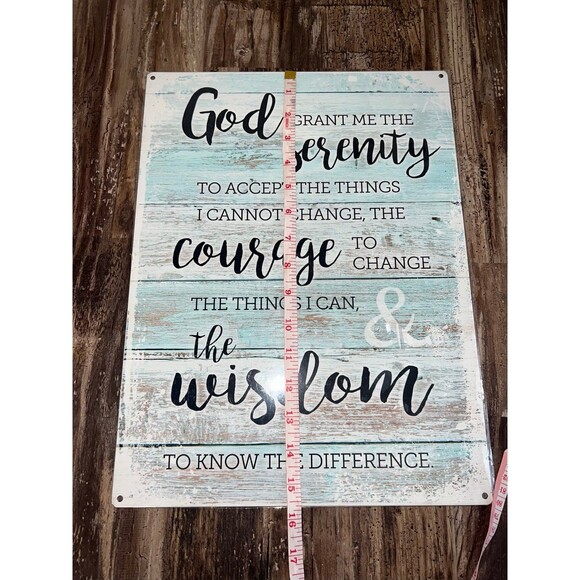 God GRANT ME THE
serenity
TO ACCEPT THE THINGS
I CANNOT CHANGE, THE
courage TO
CHANGE
THE THINGS I CAN, &
the
wisdom
TO KNOW THE DIFFERENCE.
1
2
3
4
5
6
7
8
9
10
11
12
13
14
15
16
17